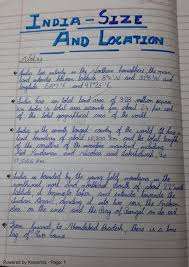 INDIA - SIZE
AND LOCATION
Notes
India lies entirely in the Northern hemisphere, the main
land extends between latitude 8°4'N and 37°6'N and
longitude 68°7'E and 97°25'E.
India has a total land area of 3.28 million square
km. India's total area accounts for about 2.4 per cent
of the total geographical area of the world.
India is the seventh largest country of the world. It has a
land boundary of about 15,200 km and the total length
of the coastline of the mainland including
Andaman and Nicobar and Lakshadweep is
7,516.6 km.
India is bounded by the young fold mountains in the
northwest, north and northeast. South of about 22° north
latitude, it begins to taper, and extends towards the
Indian Ocean, dividing it into two seas, the Arabian
Sea on the west and the Bay of Bengal on its east.
From Gujarat to Arunachal Pradesh, there is a time
lag of two hours
Powered by Kawantra - Page: 1